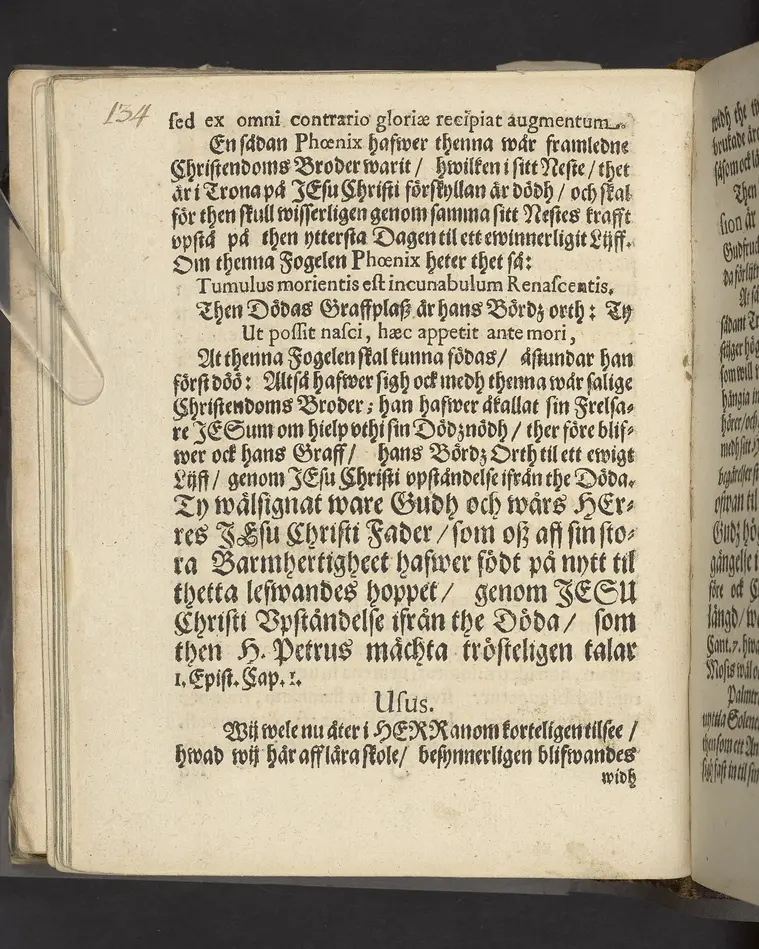 134
sed ex omni contrario gloriæ recipiat augmentum.
En sådan Phœnix hafwer thenna wår framledne
Christendoms Broder warit / hwilken i sitt Neste / thet
är i Trona på JEsu Christi förskyllan är dödh / och skal
för then skull wisserligen genom samma sitt Nestes krafft
vpstå på then yttersta Dagen til ett ewinnerligit Lijff.
Om thenna Fogelen Phœnix heter thet så:
Tumulus morientis est incunabulum Renascentis.
Then Dödas Graffplatz är hans Bördz orth: Ty
Ut possit nasci, hæc appetit ante mori,
At thenna Fogelen skal kunna födas / åstundar han
först döö: Altså hafwer sigh ock medh thenna wår salige
Christendoms Broder; han hafwer åkallat sin Frelsa-
re JESum om hielp vthi sin Dödznödh / ther före blif-
wer ock hans Graff / hans Bördz Orth til ett ewigt
Lijff / genom JEsu Christi vpståndelse ifrån the Döda.
Ty wälsignat ware Gudh och wårs HEr-
res JEsu Christi Fader / som oß aff sin sto-
ra Barmhertigheet hafwer födt på nytt til
thetta lefwandes hoppet / genom JESU
Christi Vpståndelse ifrån the Döda / som
then H. Petrus mächta trösteligen talar
1. Epist. Cap. 1.
Usus.
Wij wele nu åter i HERRanom korteligen tilsee /
hwad wij här aff lära skole / besynnerligen blifwandes
widh